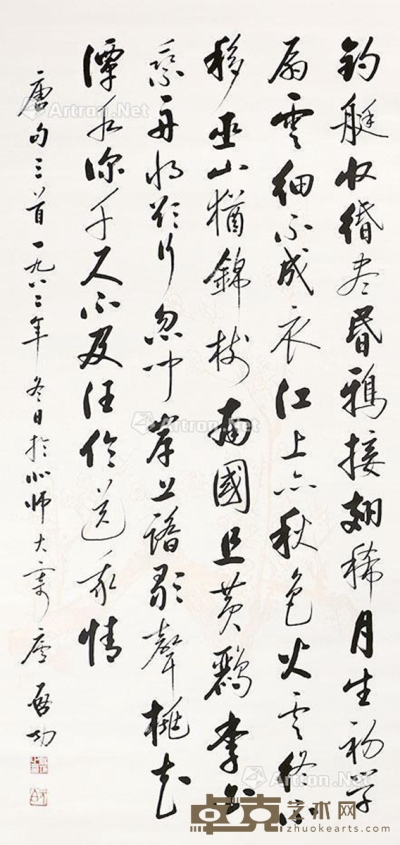 釣艇收緡盡昏鴉接翅稀月生初學
扇雲細不成衣江上亦秋色火雲終不
移巫山猶錦樹南國且黃鸝李白
乘舟將欲行忽聞岸上踏歌聲桃花
潭水深千尺不及汪倫送我情
唐句三首一九八二年冬日於北師大寄廬啟功
Artron.Net
卓克艺术网
zhuokearts.com